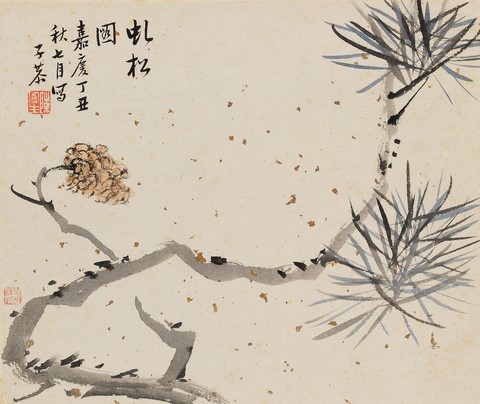 虬松
圖
嘉慶丁丑
秋七月寫
子恭